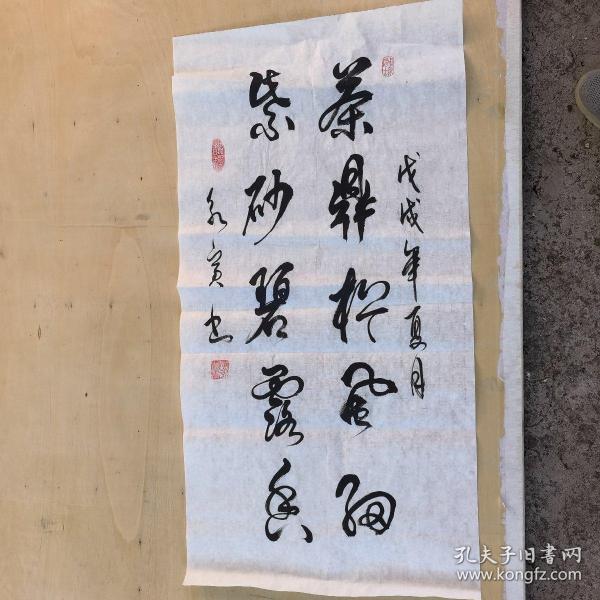 戊戌年夏月
茶鼎松风细
紫砂碧露香
永宾书
孔夫子旧书网
www.kongfz.com